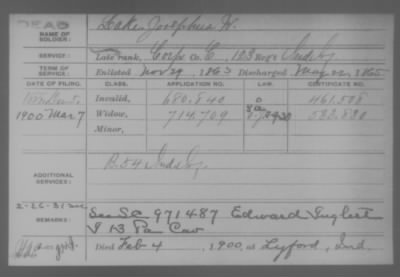 DEAD
NAME OF SOLDIER: Lake, Josephus W.
SERVICE: Late rank, Corp Co. E, 123 Reg't Inds Inf
TERM OF SERVICE: Enlisted Nov 29, 1863 Discharged May 22, 1865
DATE OF FILING. CLASS. APPLICATION NO. LAW. CERTIFICATE NO.
Invalid, 680.840 461.508
1900 Mar 7 Widow, 714,709 533.830
Minor,
ADDITIONAL SERVICES: B. 54 Inds Inf
2-26-31
REMARKS: See SC 971487 Edward Inglert
I 13 Pa Cav
Died Feb 4, 1900, at Lyford, Ind.